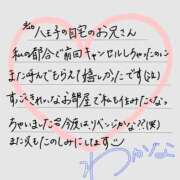 八王子の自宅のお兄さん
私の都合で前回キャンセルしちゃったのに
また呼んでもらえて嬉しかったです
すっごくきれいなお部屋で私も住みたくなっ
ちゃいました 今度はリベンジかな??(笑)
また会えるのたのしみにしてます